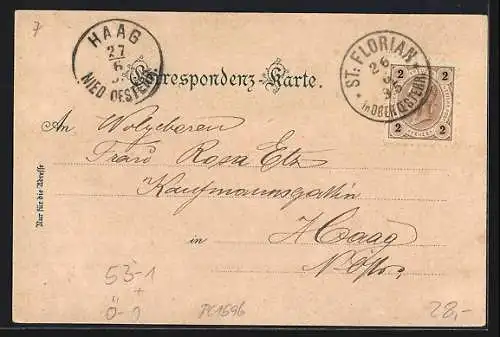 7
HAAG
27
6
NIED. OESTERR.
ST. FLORIAN
26
6
in OBER OESTERR.
2 2
2 2
Correspondenz-Karte.
An Wolgeboren
Frau Rosa Etz
Kaufmannsgattin
in Haag
N. Östr.
Nur für die Adresse
53-1
+
Ö-0
PC1596
28,-